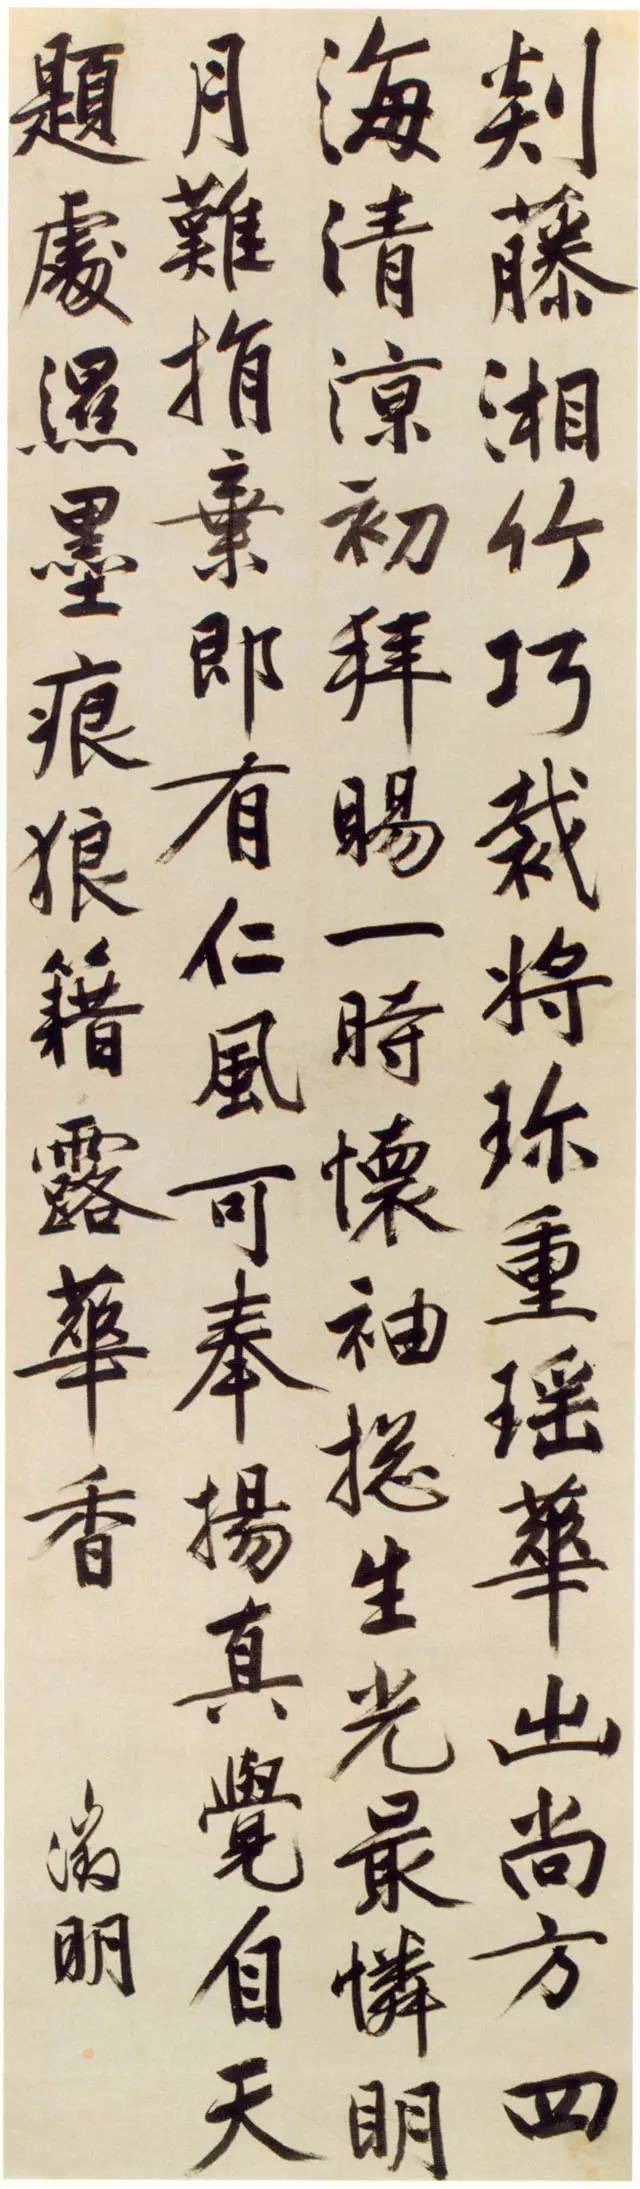 剡藤湘竹巧裁將珎重瑶華出尚方四
海清涼初拜賜一時懷袖揔生光最憐明
月難指棄即有仁風可奉揚真覺自天
題處濕墨痕狼籍露華香
徵明